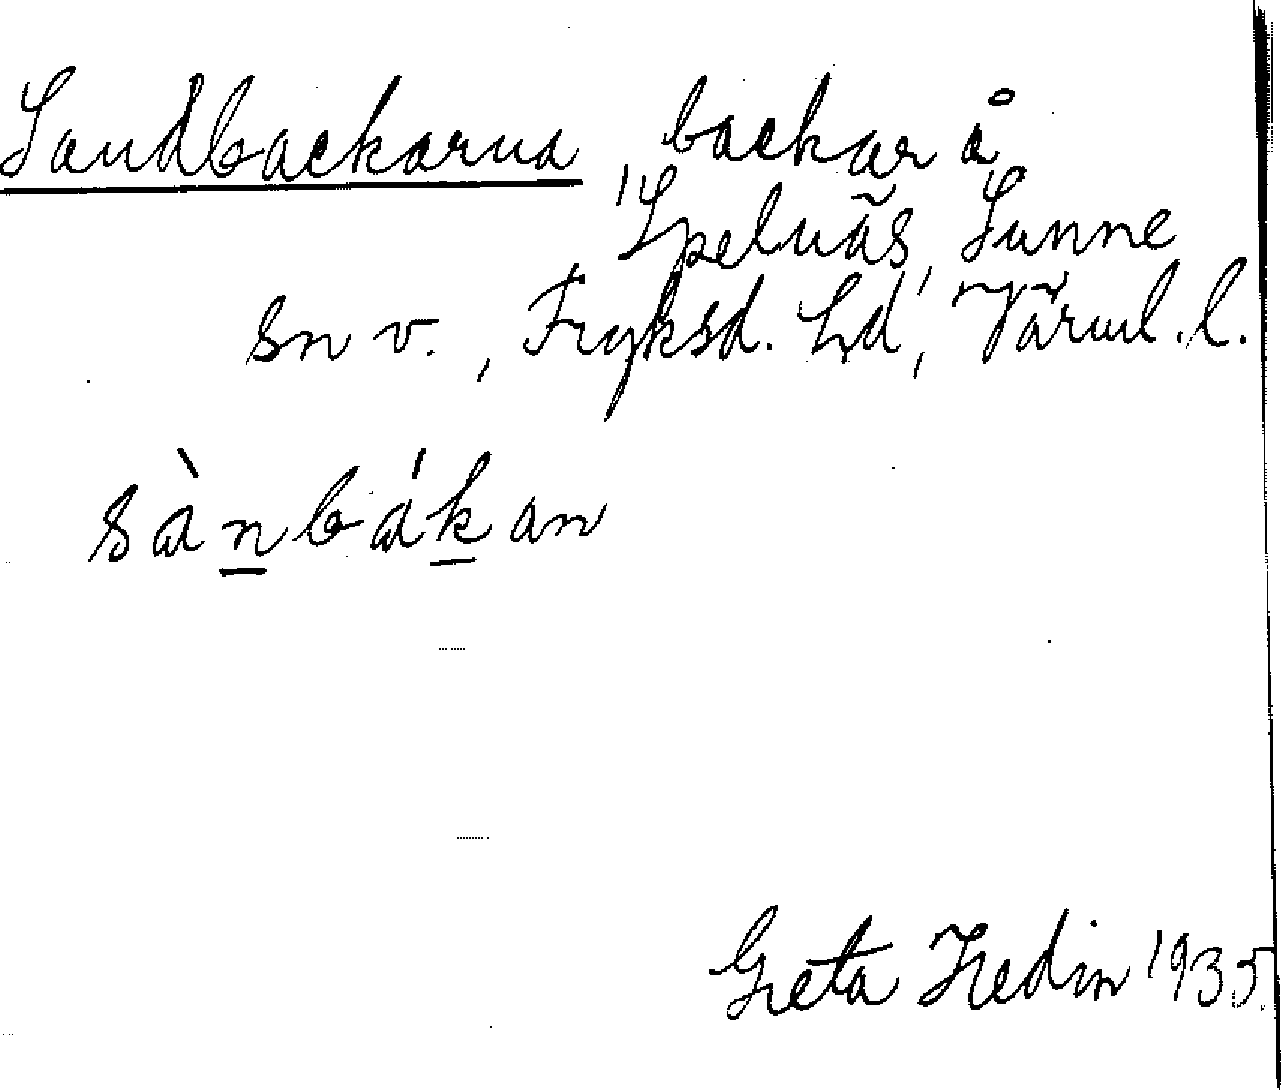 Sandbackarna, backar å
Spelnäs, Sunne
sn v., Fryksd. hd, Värml. l.
sànbákan
Greta Hedin 1935